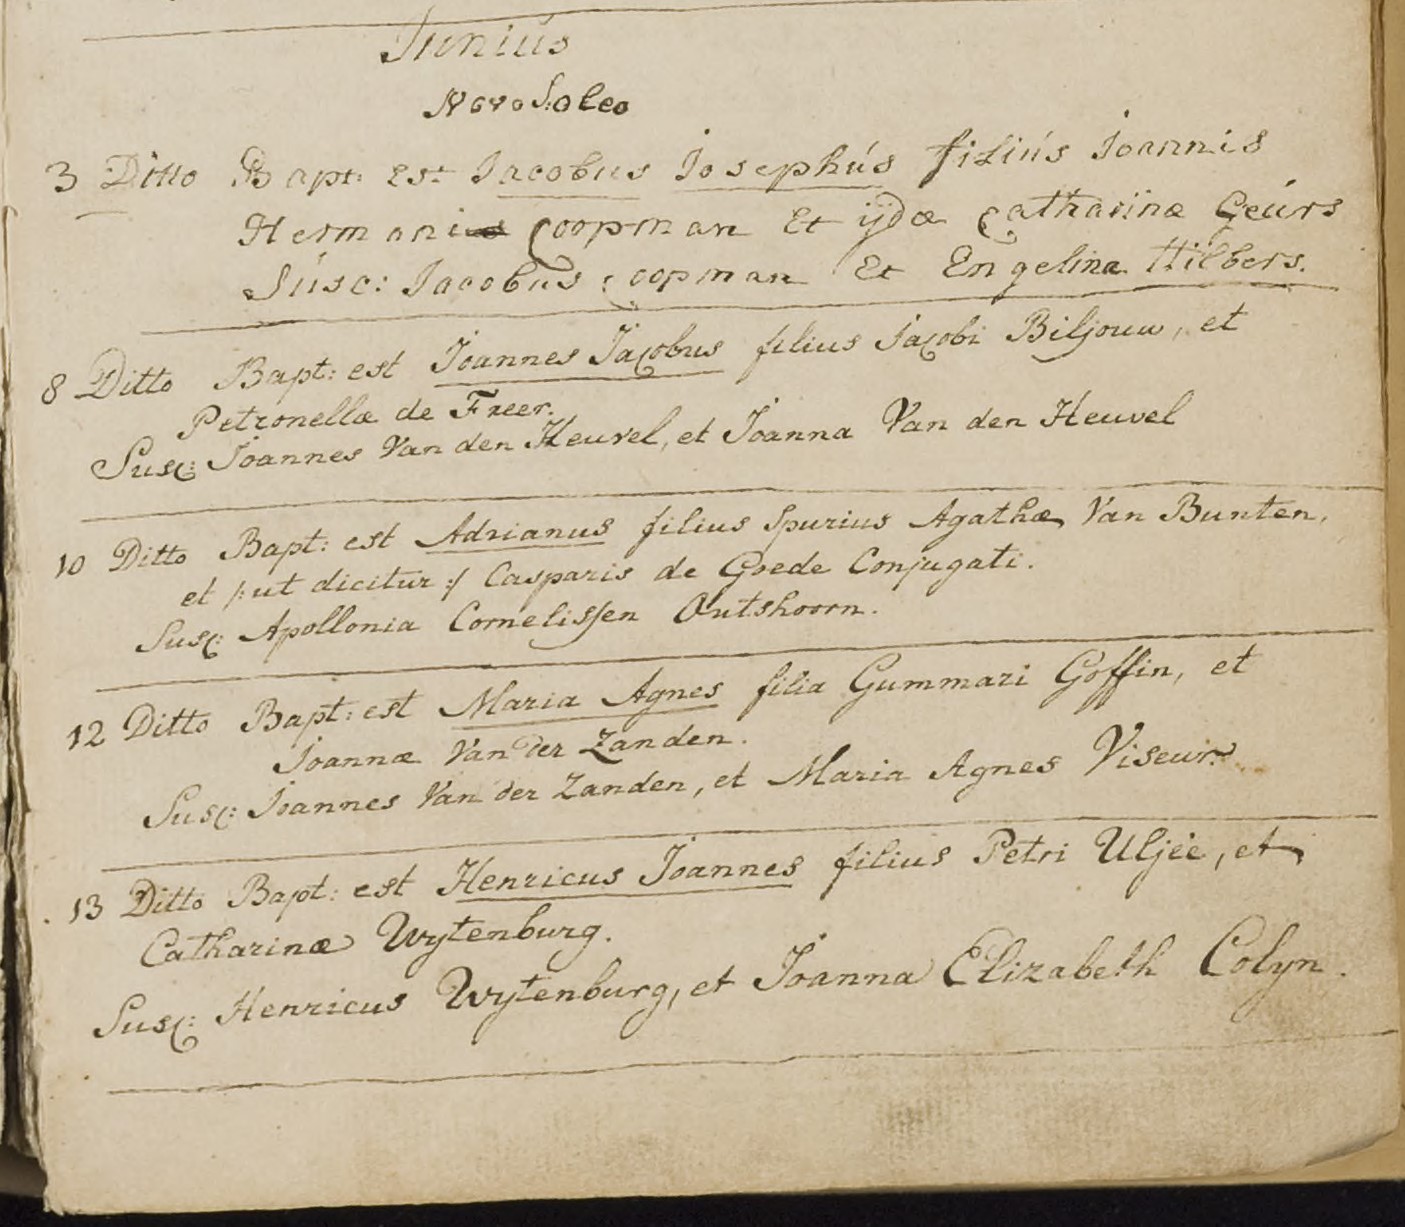 Junius
Novo S: oleo
3 Ditto Bapt: Est Jacobus Josephús filiús Joannis
Hermani Coopman Et ijdæ Catharinæ Geúrs
Súsc: Jacobus Coopman Et Engelina Hilbers.
8 Ditto Bapt: est Joannes Jacobus filius Jacobi Biljouw, et
Petronellæ de Freer.
Susc: Joannes Van den Heuvel, et Joanna Van den Heuvel
10 Ditto Bapt: est Adrianus filius Spurius Agathæ Van Bunten,
et /: ut dicitur :/ Casparis de Goede Conjugati.
Susc: Apollonia Cornelissen Outshoorn.
12 Ditto Bapt: est Maria Agnes filia Gummari Goffin, et
Joannæ Van der Zanden.
Susc: Joannes Van der Zanden, et Maria Agnes Viseur.
13 Ditto Bapt: est Henricus Joannes filius Petri Uljée, et
Catharinæ Wytenburg.
Susc: Henricus Wytenburg, et Joanna Elizabeth Colyn.